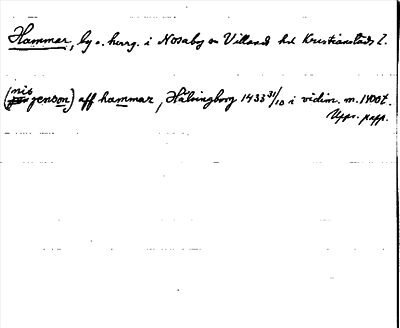 Hammar, by o. herrg. i Nosaby sn Villands hd Kristianstads l.
(nis genson) aff hammar, Hälsingborg 1433 31/10 i vidim. m. 1400t.
Upps. papp.